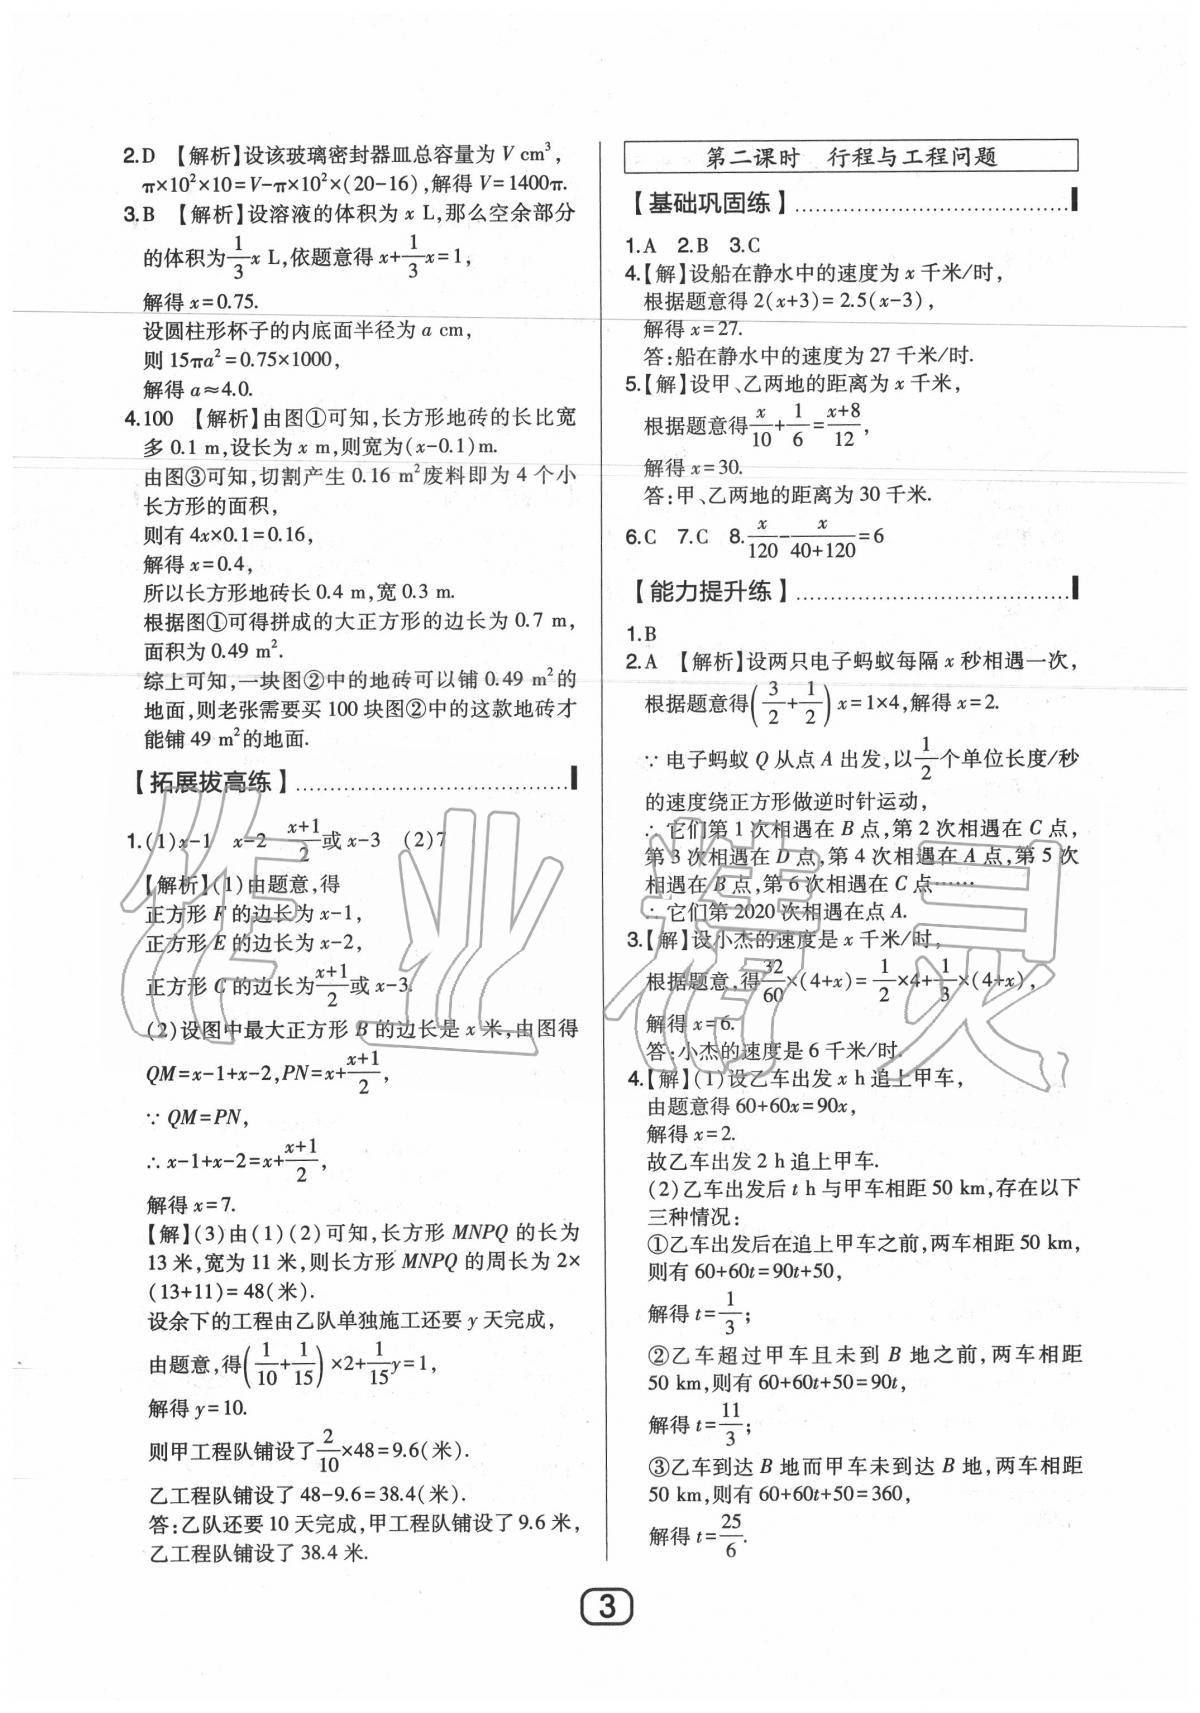 2.D 【解析】设该玻璃密封器皿总容量为 V cm³，
π×10²×10=V-π×10²×(20-16),解得 V=1400π.
3.B 【解析】设溶液的体积为 x L,那么空余部分
的体积为1/3 x L,依题意得 x+1/3 x=1,
解得 x=0.75.
设圆柱形杯子的内底面半径为 a cm,
则 15πa²=0.75×1000,
解得 a≈4.0.
4.100 【解析】由图①可知,长方形地砖的长比宽
多 0.1 m,设长为 x m,则宽为(x-0.1)m.
由图③可知,切割产生 0.16 m²废料即为 4 个小
长方形的面积,
则有 4x×0.1=0.16,
解得 x=0.4,
所以长方形地砖长 0.4 m,宽 0.3 m.
根据图①可得拼成的大正方形的边长为 0.7 m,
面积为 0.49 m².
综上可知,一块图②中的地砖可以铺 0.49 m²的
地面,则老张需要买 100 块图②中的这款地砖才
能铺 49 m²的地面.
【拓展拔高练】
1.(1)x-1 x-2 (x+1)/2或 x-3 (2)7
【解析】(1)由题意,得
正方形 F 的边长为 x-1,
正方形 E 的边长为 x-2,
正方形 C 的边长为(x+1)/2或 x-3.
(2)设图中最大正方形 B 的边长是 x 米,由图得
QM=x-1+x-2,PN=x+(x+1)/2,
∵ QM=PN,
∴ x-1+x-2=x+(x+1)/2,
解得 x=7.
【解】(3)由(1)(2)可知,长方形 MNPQ 的长为
13 米,宽为 11 米,则长方形 MNPQ 的周长为 2×
(13+11)=48(米).
设余下的工程由乙队单独施工还要 y 天完成,
由题意,得(1/10+1/15)×2+1/15 y=1,
解得 y=10.
则甲工程队铺设了2/10×48=9.6(米).
乙工程队铺设了 48-9.6=38.4(米).
答:乙队还要 10 天完成,甲工程队铺设了 9.6 米,
乙工程队铺设了 38.4 米.
第二课时 行程与工程问题
【基础巩固练】
1.A 2.B 3.C
4.【解】设船在静水中的速度为 x 千米/时,
根据题意得 2(x+3)=2.5(x-3),
解得 x=27.
答:船在静水中的速度为 27 千米/时.
5.【解】设甲、乙两地的距离为 x 千米,
根据题意得x/10+1/6=(x+8)/12,
解得 x=30.
答:甲、乙两地的距离为 30 千米.
6.C 7.C 8.x/120-x/(40+120)=6
【能力提升练】
1.B
2.A 【解析】设两只电子蚂蚁每隔 x 秒相遇一次,
根据题意得(3/2+1/2)x=1×4,解得 x=2.
∵ 电子蚂蚁 Q 从点 A 出发,以1/2个单位长度/秒
的速度绕正方形做逆时针运动,
∴ 它们第 1 次相遇在 B 点,第 2 次相遇在 C 点,
第 3 次相遇在 D 点,第 4 次相遇在 A 点,第 5 次
相遇在 B 点,第 6 次相遇在 C 点……
∴ 它们第 2020 次相遇在点 A.
3.【解】设小杰的速度是 x 千米/时,
根据题意,得32/60×(4+x)=1/2×4+1/3×(4+x),
解得 x=6.
答:小杰的速度是 6 千米/时.
4.【解】(1)设乙车出发 x h 追上甲车,
由题意得 60+60x=90x,
解得 x=2.
故乙车出发 2 h 追上甲车.
(2)乙车出发后 t h 与甲车相距 50 km,存在以下
三种情况:
①乙车出发后在追上甲车之前,两车相距 50 km,
则有 60+60t=90t+50,
解得 t=1/3;
②乙车超过甲车且未到 B 地之前,两车相距
50 km,则有 60+60t+50=90t,
解得 t=11/3;
③乙车到达 B 地而甲车未到达 B 地,两车相距
50 km,则有 60+60t+50=360,
解得 t=25/6.
3
作业精灵